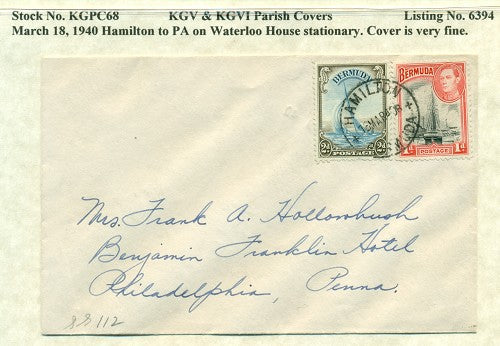 Stock No. KGPC68 KGV & KGVI Parish Covers Listing No. 6394
March 18, 1940 Hamilton to PA on Waterloo House stationary. Cover is very fine.
BERMUDA
2d 2d
POSTAGE
BERMUDA
1d POSTAGE 1d
HAMILTON
Mrs. Frank A. Hollowbush
Benjamin Franklin Hotel
Philadelphia, Penna.
88112